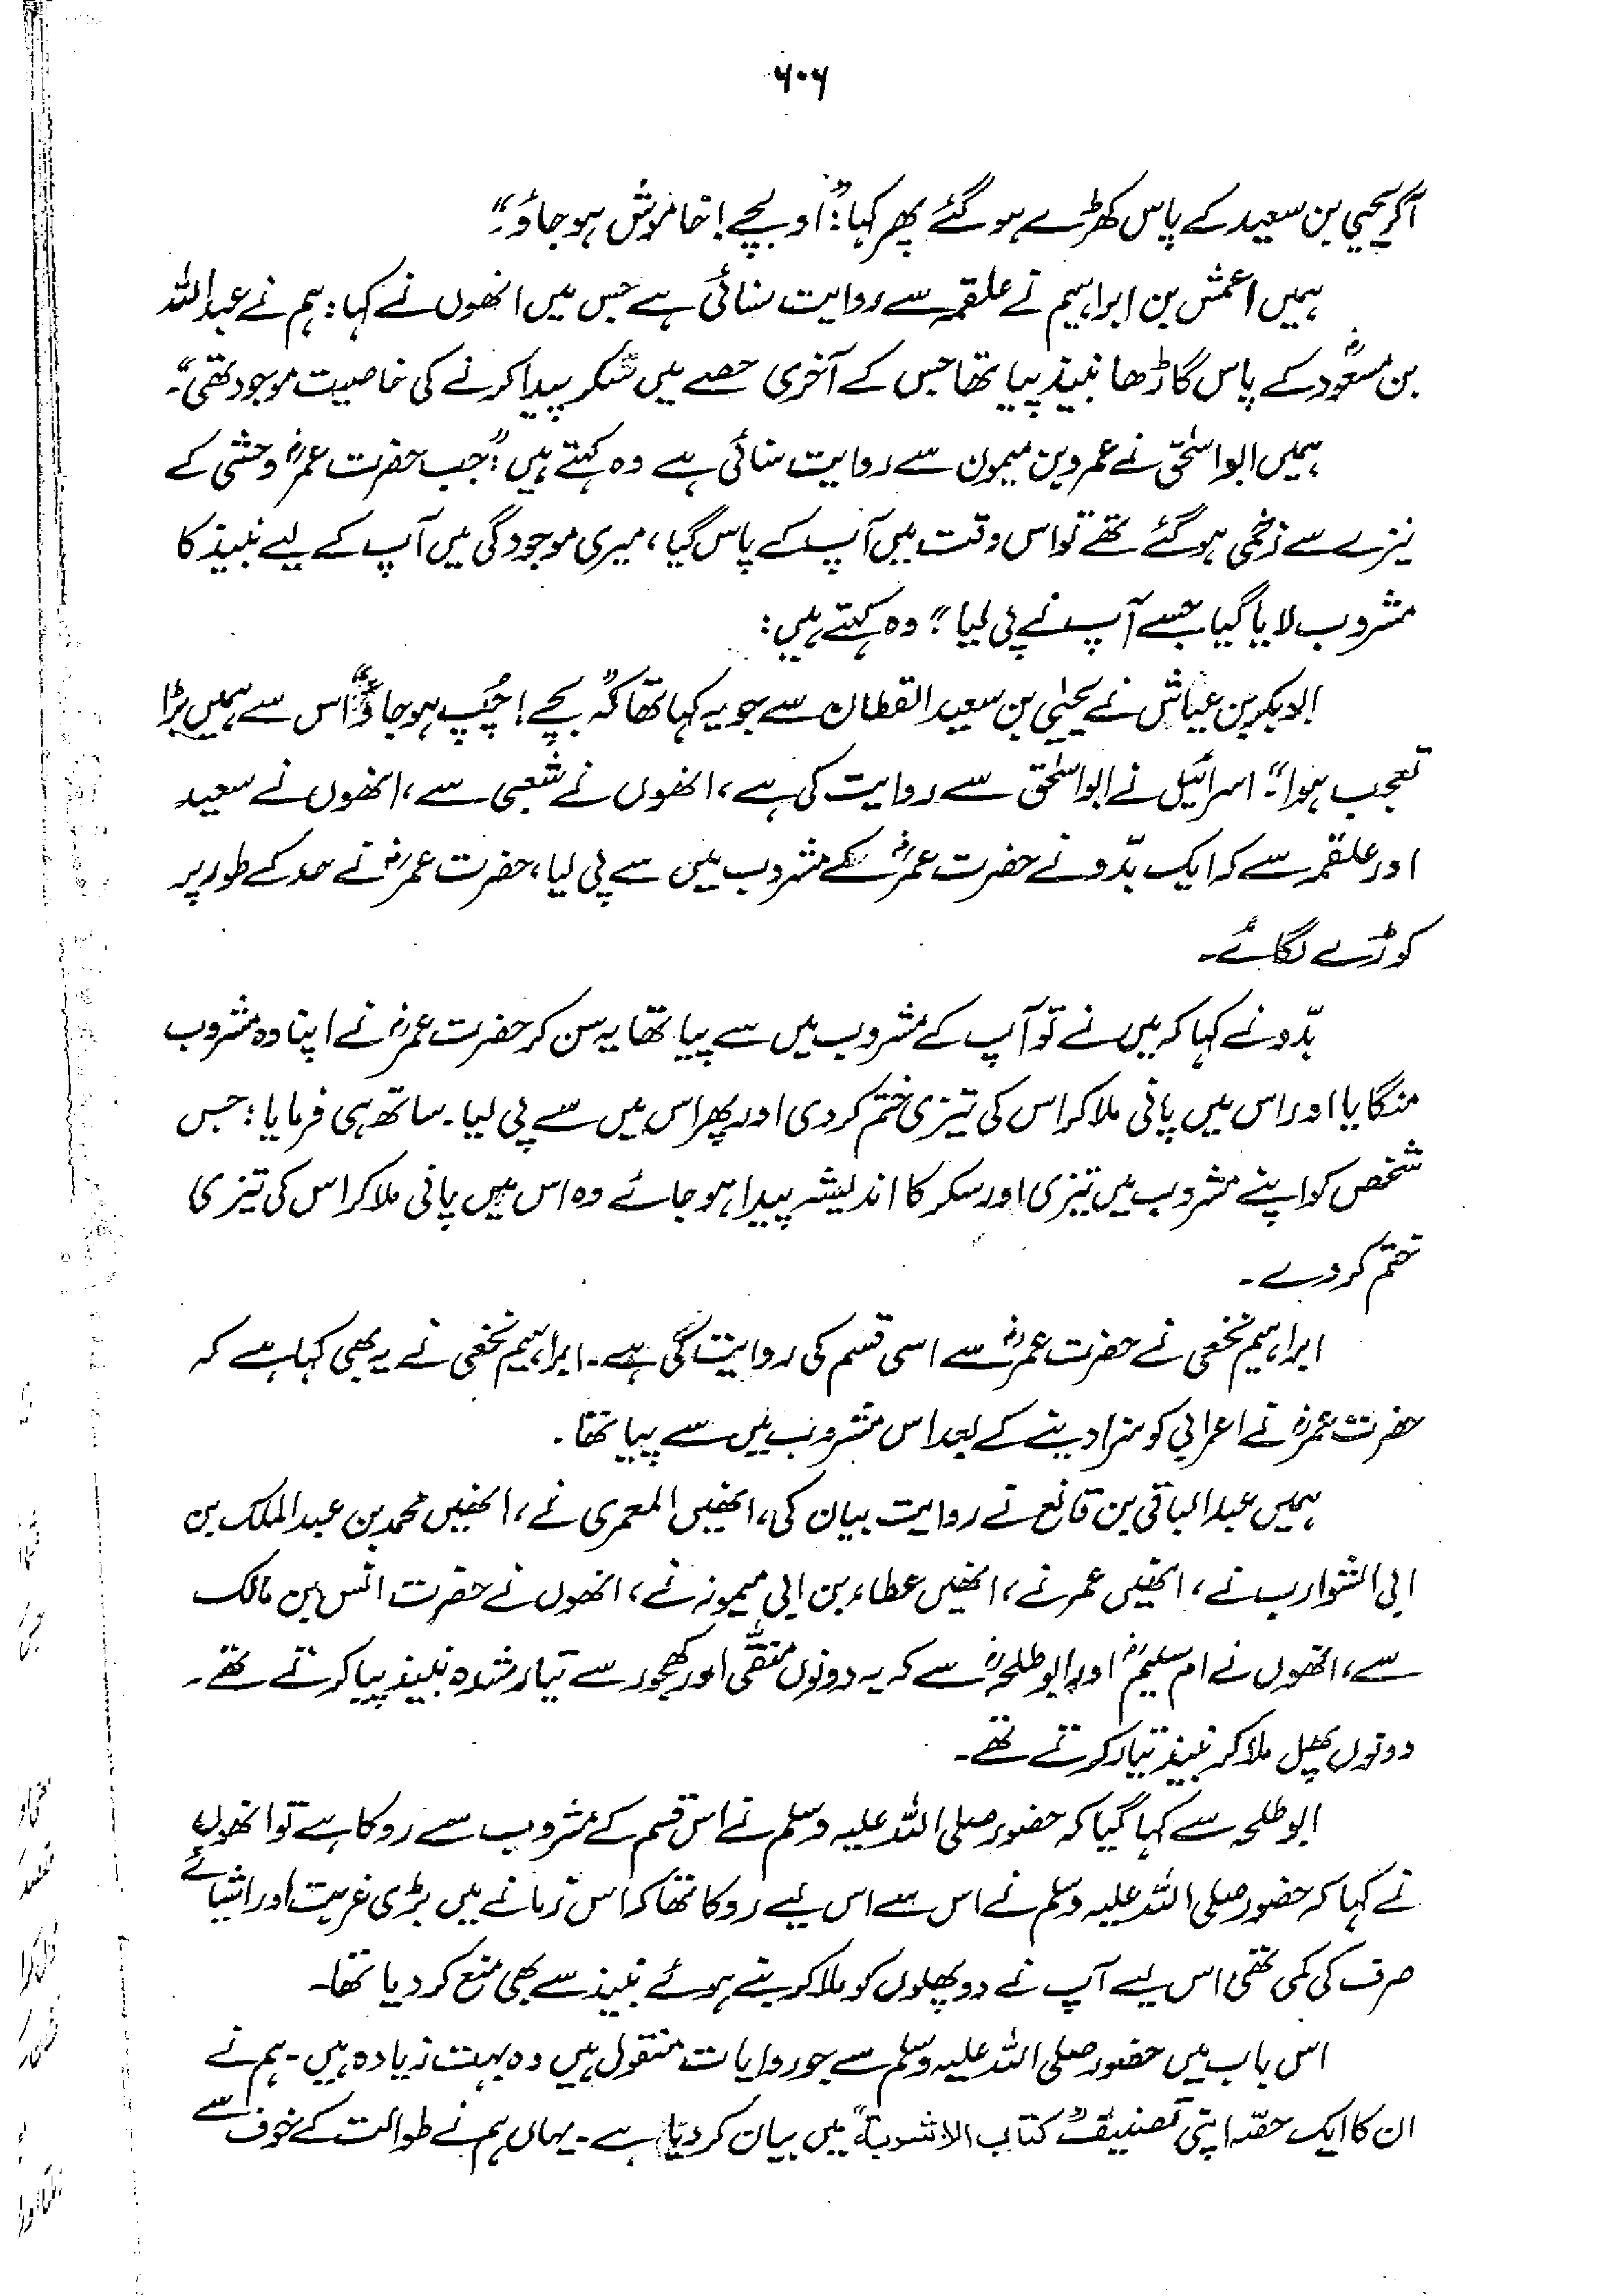 ۶۰۶
آکر یحییٰ بن سعید کے پاس کھڑے ہو گئے پھر کہا: "او بچے! خاموش ہو جاؤ۔"
ہمیں اعمش بن ابراہیم نے علقمہ سے روایت سنائی ہے جس میں انھوں نے کہا: ہم نے عبداللہ
بن مسعودؓ کے پاس گاڑھا نبیذ پیا تھا جس کے آخری حصے میں سُکر پیدا کرنے کی خاصیت موجود تھی"۔
ہمیں ابواسحٰق نے عمرو بن میمون سے روایت سنائی ہے وہ کہتے ہیں: "جب حضرت عمرؓ وحشی کے
نیزے سے زخمی ہو گئے تھے تو اس وقت میں آپ کے پاس گیا، میری موجودگی میں آپ کے لیے نبیذ کا
مشروب لایا گیا جسے آپ نے پی لیا" وہ کہتے ہیں:
ابوبکر بن عیاش نے یحییٰ بن سعید القطان سے جو یہ کہا تھا کہ "بچے! چُپ ہو جاؤ" اس سے ہمیں بڑا
تعجب ہوا"۔ اسرائیل نے ابواسحٰق سے روایت کی ہے، انھوں نے شعبی سے، انھوں نے سعید
اور علقمہ سے کہ ایک بدّو نے حضرت عمرؓ کے مشروب میں سے پی لیا، حضرت عمرؓ نے حد کے طور پر
کوڑے لگائے۔
بدّو نے کہا کہ میں نے تو آپ کے مشروب میں سے پیا تھا یہ سن کر حضرت عمرؓ نے اپنا وہ مشروب
منگایا اور اس میں پانی ملا کر اس کی تیزی ختم کر دی اور پھر اس میں سے پی لیا۔ ساتھ ہی فرمایا: جس
شخص کو اپنے مشروب میں تیزی اور سکر کا اندیشہ پیدا ہو جائے وہ اس میں پانی ملا کر اس کی تیزی
ختم کر دے۔
ابراہیم نخعی نے حضرت عمرؓ سے اسی قسم کی روایت کی ہے۔ ابراہیم نخعی نے یہ بھی کہا ہے کہ
حضرت عمرؓ نے اعرابی کو سزا دینے کے بعد اس مشروب میں سے پیا تھا۔
ہمیں عبدالباقی بن قانع نے روایت بیان کی، انھیں المعمری نے، انھیں محمد بن عبدالملک بن
ابی الشوارب نے، انھیں عمر نے، انھیں عطاء بن ابی میمونہ نے، انھوں نے حضرت انس بن مالک
سے، انھوں نے ام سلیمؓ اور ابوطلحہؓ سے کہ یہ دونوں منقّٰی اور کھجور سے تیار شدہ نبیذ پیا کرتے تھے۔
دونوں پھل ملا کر نبیذ تیار کرتے تھے۔
ابوطلحہ سے کہا گیا کہ حضور صلی اللہ علیہ وسلم نے اس قسم کے مشروب سے روکا ہے تو انھوں
نے کہا کہ حضور صلی اللہ علیہ وسلم نے اس سے اس لیے روکا تھا کہ اس زمانے میں بڑی غربت اور اشیائے
صرف کی کمی تھی اس لیے آپ نے دو پھلوں کو ملا کر بنے ہوئے نبیذ سے بھی منع کر دیا تھا۔
اس باب میں حضور صلی اللہ علیہ وسلم سے جو روایات منقول ہیں وہ بہت زیادہ ہیں۔ ہم نے
ان کا ایک حصّہ اپنی تصنیف "کتاب الاشربۃ" میں بیان کر دیا ہے۔ یہاں ہم نے طوالت کے خوف سے